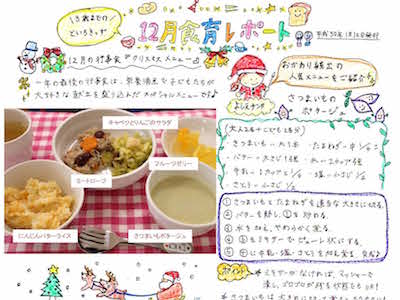 1さままでの
といろきっず
12月食育レポート
平成30年1月10日発行
12月の行事食★クリスマスメニュー
一年の最後の行事食は、栄養満点で子どもたちが
大好きな献立を盛り込んだスペシャルメニューです♪
おかわり続出の
人気メニューをご紹介♪
よしだキッチン
さつまいもの
ポタージュ
(大人2名+こども1名分)
・さつまいも…
・たまねぎ…中1/2コ
・バター…大さじ1強
・水…
・牛乳…
・塩…小さじ
・さとう…小さじ
①さつまいもとたまねぎを適当な大きさに切る。
②バターを熱し、①を炒める。
③水を加え、やわらかく煮る。
④③をミキサーでピューレ状にする。
⑤④に牛乳・塩・さとうを加え煮る。完成♪
ポイント
★ミキサーがなければ、マッシャーで
潰し、ゴロゴロが残る食感もGOOD!
キャベツとりんごのサラダ
フルーツゼリー
ミートローフ
にんじんバターライス
さつまいもポタージュ